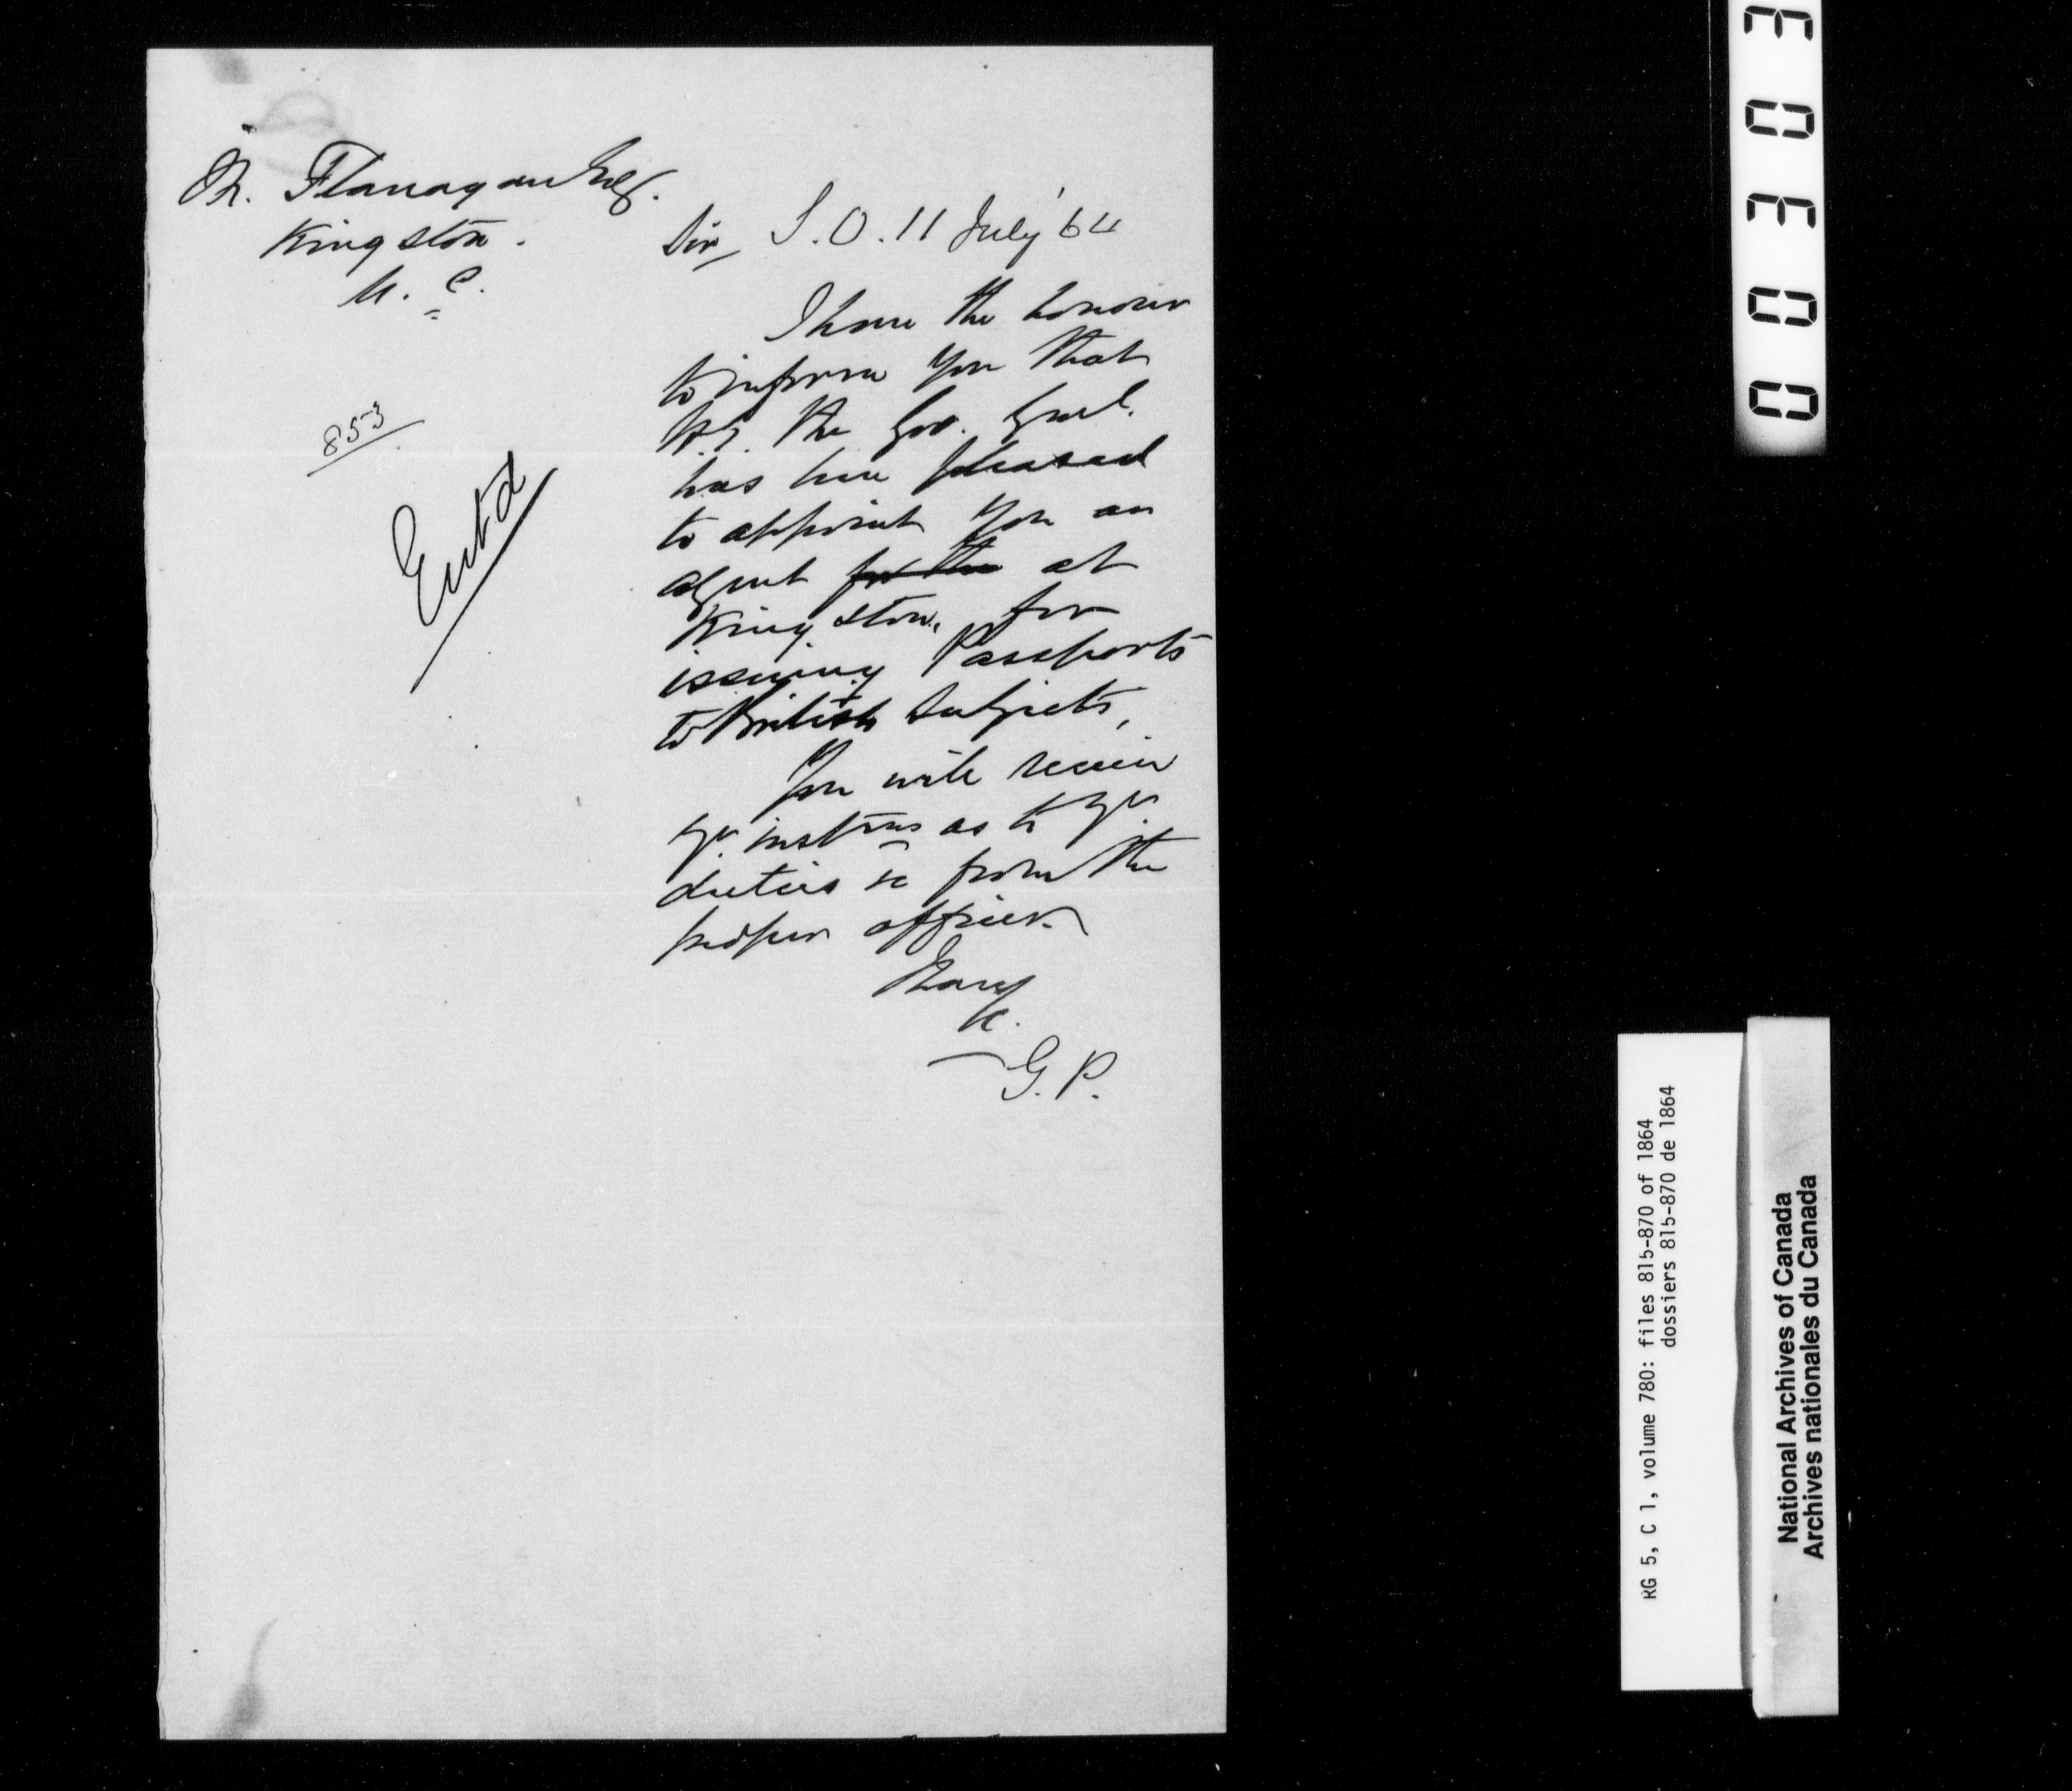 M. Flanagan Esq.
Kingston.
U. C.
853
Entd
S. O. 11 July '64
Sir,
I have the honour
to inform you that
H.E. the Gov. Genl.
has been pleased
to appoint you an
agent for the at
Kingston, for
issuing Passports
to British Subjects,
You will receive
yr. instrns as to yr.
duties &c from the
proper officer.
I have
&c.
G. P.
0 0 3 0 3
RG 5, C 1, volume 780: files 815-870 of 1864
dossiers 815-870 de 1864
National Archives of Canada
Archives nationales du Canada